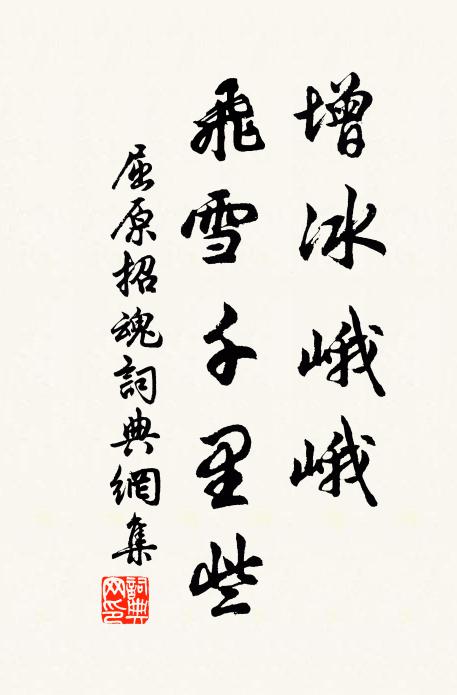 增冰峨峨
飛雪千里些
屈原招魂詞典網集
詞典
网印